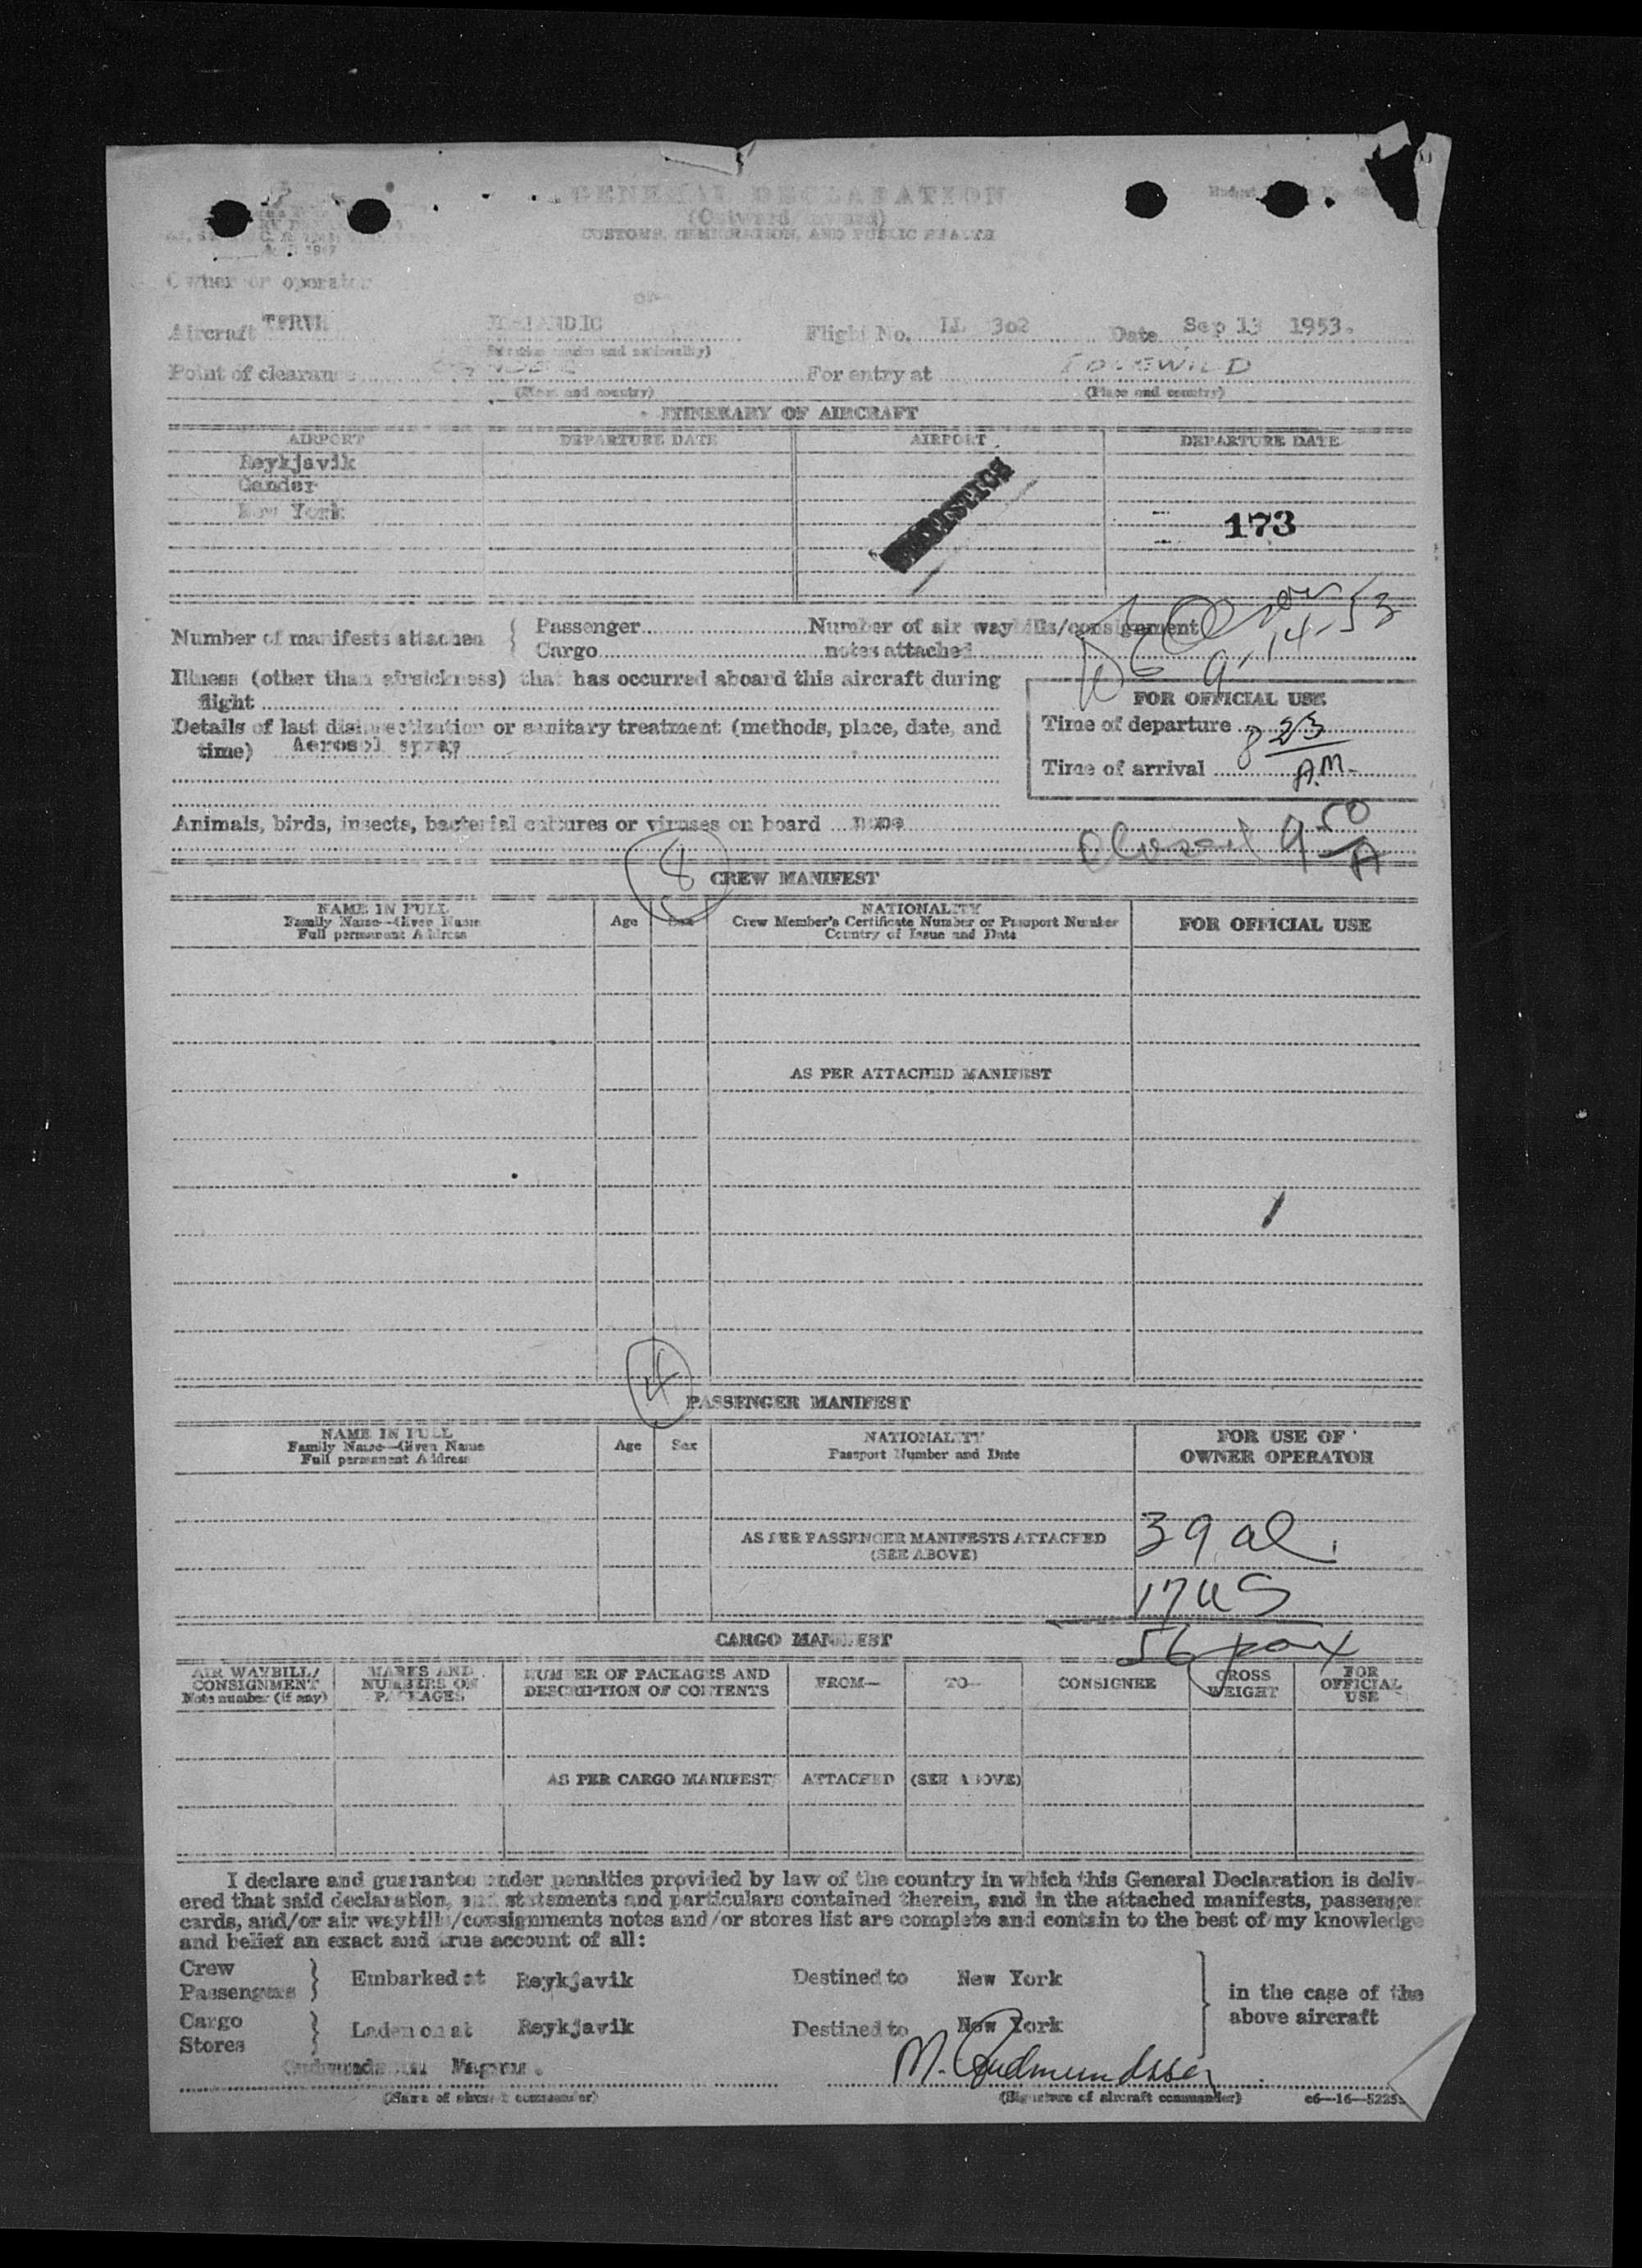 GENERAL DECLARATION
(Outward/Inward)
CUSTOMS, IMMIGRATION, AND PUBLIC HEALTH
Owner or operator
Aircraft TFRVH ICELANDIC Flight No. LL 302 Date Sep 13 1953.
(Registration marks and nationality)
Point of clearance GANDER For entry at IDLEWILD
(Place and country) (Place and country)
ITINERARY OF AIRCRAFT
AIRPORT DEPARTURE DATE AIRPORT DEPARTURE DATE
Reykjavik
Gander
New York
STATISTICS
173
9-14-53
Number of manifests attached { Passenger Number of air waybills/consignment
Cargo notes attached
Illness (other than airsickness) that has occurred aboard this aircraft during
flight
FOR OFFICIAL USE
Details of last disinsectization or sanitary treatment (methods, place, date, and
time) Aerosol spray
Time of departure
8 23 A.M.
Time of arrival
Animals, birds, insects, bacterial cultures or viruses on board none
Closed 9 50 A
8
CREW MANIFEST
NAME IN FULL
Family Name—Given Name
Full permanent Address
Age Sex
NATIONALITY
Crew Member's Certificate Number or Passport Number
Country of Issue and Date
FOR OFFICIAL USE
AS PER ATTACHED MANIFEST
4
PASSENGER MANIFEST
NAME IN FULL
Family Name—Given Name
Full permanent Address
Age Sex
NATIONALITY
Passport Number and Date
FOR USE OF
OWNER OPERATOR
AS PER PASSENGER MANIFESTS ATTACHED
(SEE ABOVE)
39 al.
17 US
56 pax
CARGO MANIFEST
AIR WAYBILL/
CONSIGNMENT
Note number (if any)
MARKS AND
NUMBERS ON
PACKAGES
NUMBER OF PACKAGES AND
DESCRIPTION OF CONTENTS
FROM— TO— CONSIGNEE
GROSS
WEIGHT
FOR
OFFICIAL
USE
AS PER CARGO MANIFESTS ATTACHED (SEE ABOVE)
I declare and guarantee under penalties provided by law of the country in which this General Declaration is deliv-
ered that said declaration, and statements and particulars contained therein, and in the attached manifests, passenger
cards, and/or air waybills/consignments notes and/or stores list are complete and contain to the best of my knowledge
and belief an exact and true account of all:
Crew
Passengers } Embarked at Reykjavik Destined to New York
in the case of the
above aircraft
Cargo
Stores } Laden on at Reykjavik Destined to New York
Magnus.
M. Gudmundsson
(Name of aircraft commander) (Signature of aircraft commander)